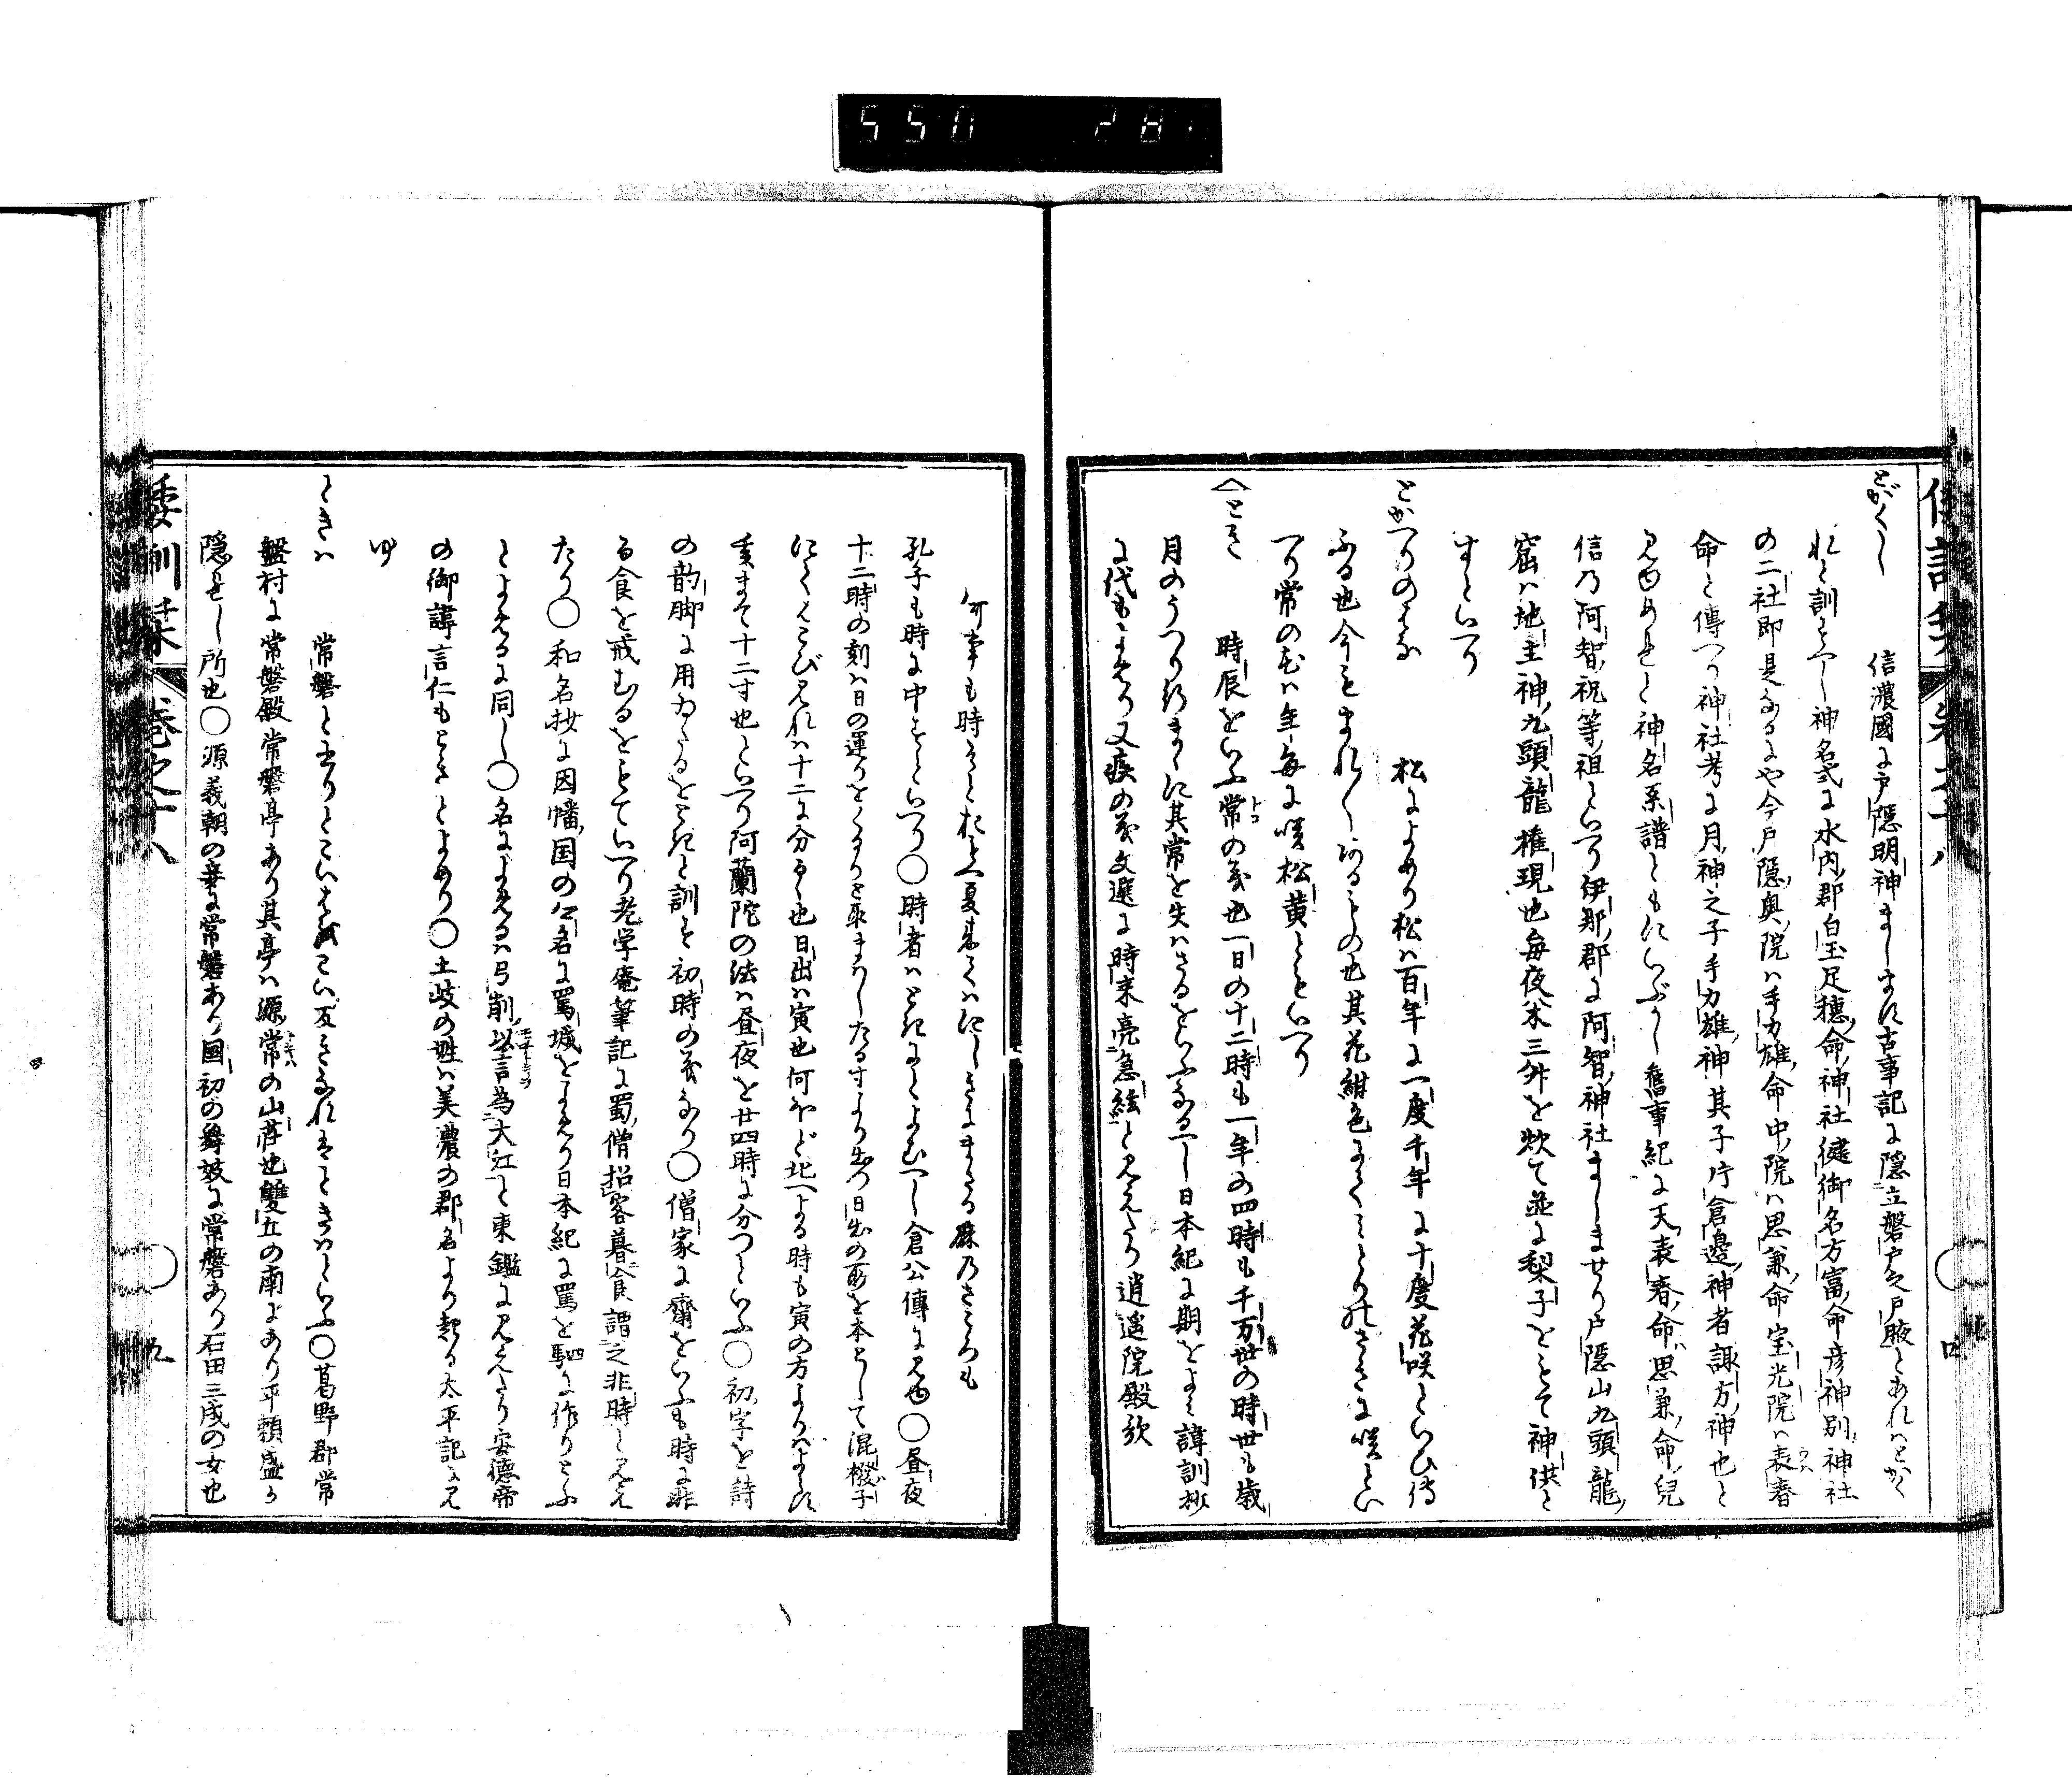 550 281
とがくし 信濃國に戸隠明神まします古事記に隠立磐戸之戸腋とあれはとかく
れと訓へし神名式に水内郡白玉足穂命神社健御名方富命彦神別神社
の二社即是なるにや今戸隠奥院ハ手力雄命中院ハ思兼命宝光院ハ表春
命と傳へり神社考に月神之子手力雄神其子片倉邊神者諏方神也と
見ゆめれと神名系譜ともにいぶかし舊事紀に天表春命思兼命兒
信乃阿智祝等祖といへり伊那郡に阿智神社ましませり戸隠山九頭龍
窟ハ地主神九頭龍権現也毎夜米三舛を炊て並に梨子をもて神供と
すといへり
とかへりのはな 松によめり松ハ百年に一度千年に十度花咲といひ傳
ふる也今もまれ〳〵あるもの也其花紺色
へり常の花ハ年毎に咲松黄ともいへり
とき 時辰をいふ常の義也一日の十二時も一年の四時も千万世の時世も歳
月のうつり行まゝに其常を失はさるをいふなるへし日本紀に期をよみ諱訓抄
に代もよめり又疾の義文選に時来亮急絃と見えたり逍遥院殿歌
何事も時そとおもへ夏来てハにしきにまさる麻乃さころも
孔子も時に中すといへり〇時者ハときにとよむへし倉公傳に見ゆ〇昼夜
十二時の刻ハ日の運りをもり
にてんこび見れハ十二に分るゝ也日出ハ寅也何ほど北へよる時も寅の方よりハよらす
十二寸也といへり阿蘭陀の法ハ昼夜を廿四時に分つといふ〇初字を詩
の韵脚に用ゐたるをときと訓す初時の義なり〇僧家に齋をいふも時に非
る食を戒むるをもていへり老学庵筆記に蜀僧招客暮食謂之非時と見え
たり〇和名抄に因幡国の公名に罵城をよめり日本紀に罵を駟に作りとふ
とよめるに同し〇名によめるハ弓削以言為大江と東鑑に見えたり安徳帝
の御諱言仁もときとよめり〇土岐の姓ハ美濃の郡名より起る太平記に見
ゆ
ときハ 常磐と
葛野郡常
盤村に常磐殿常磐亭あり其亭ハ源常の山荘也雙丘の南にあり平頼盛か
隠せし所也〇源義朝の妾に常磐あり国初の舞妓に常磐あり石田三成の女也
倭訓栞 巻之十八 九